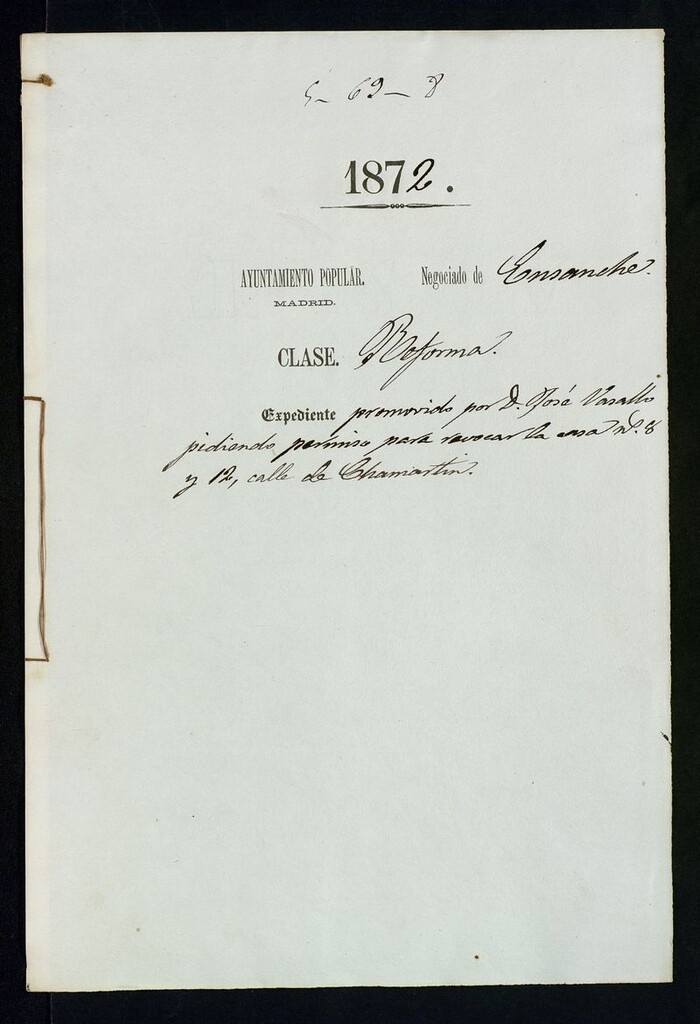 5 - 69 - 8
1872.
AYUNTAMIENTO POPULAR. Negociado de Ensanche.
MADRID.
CLASE. Reforma.
Expediente promovido por D. José Vasallo
pidiendo permiso para revocar la casa nº. 8
y 12, calle de Chamartin.